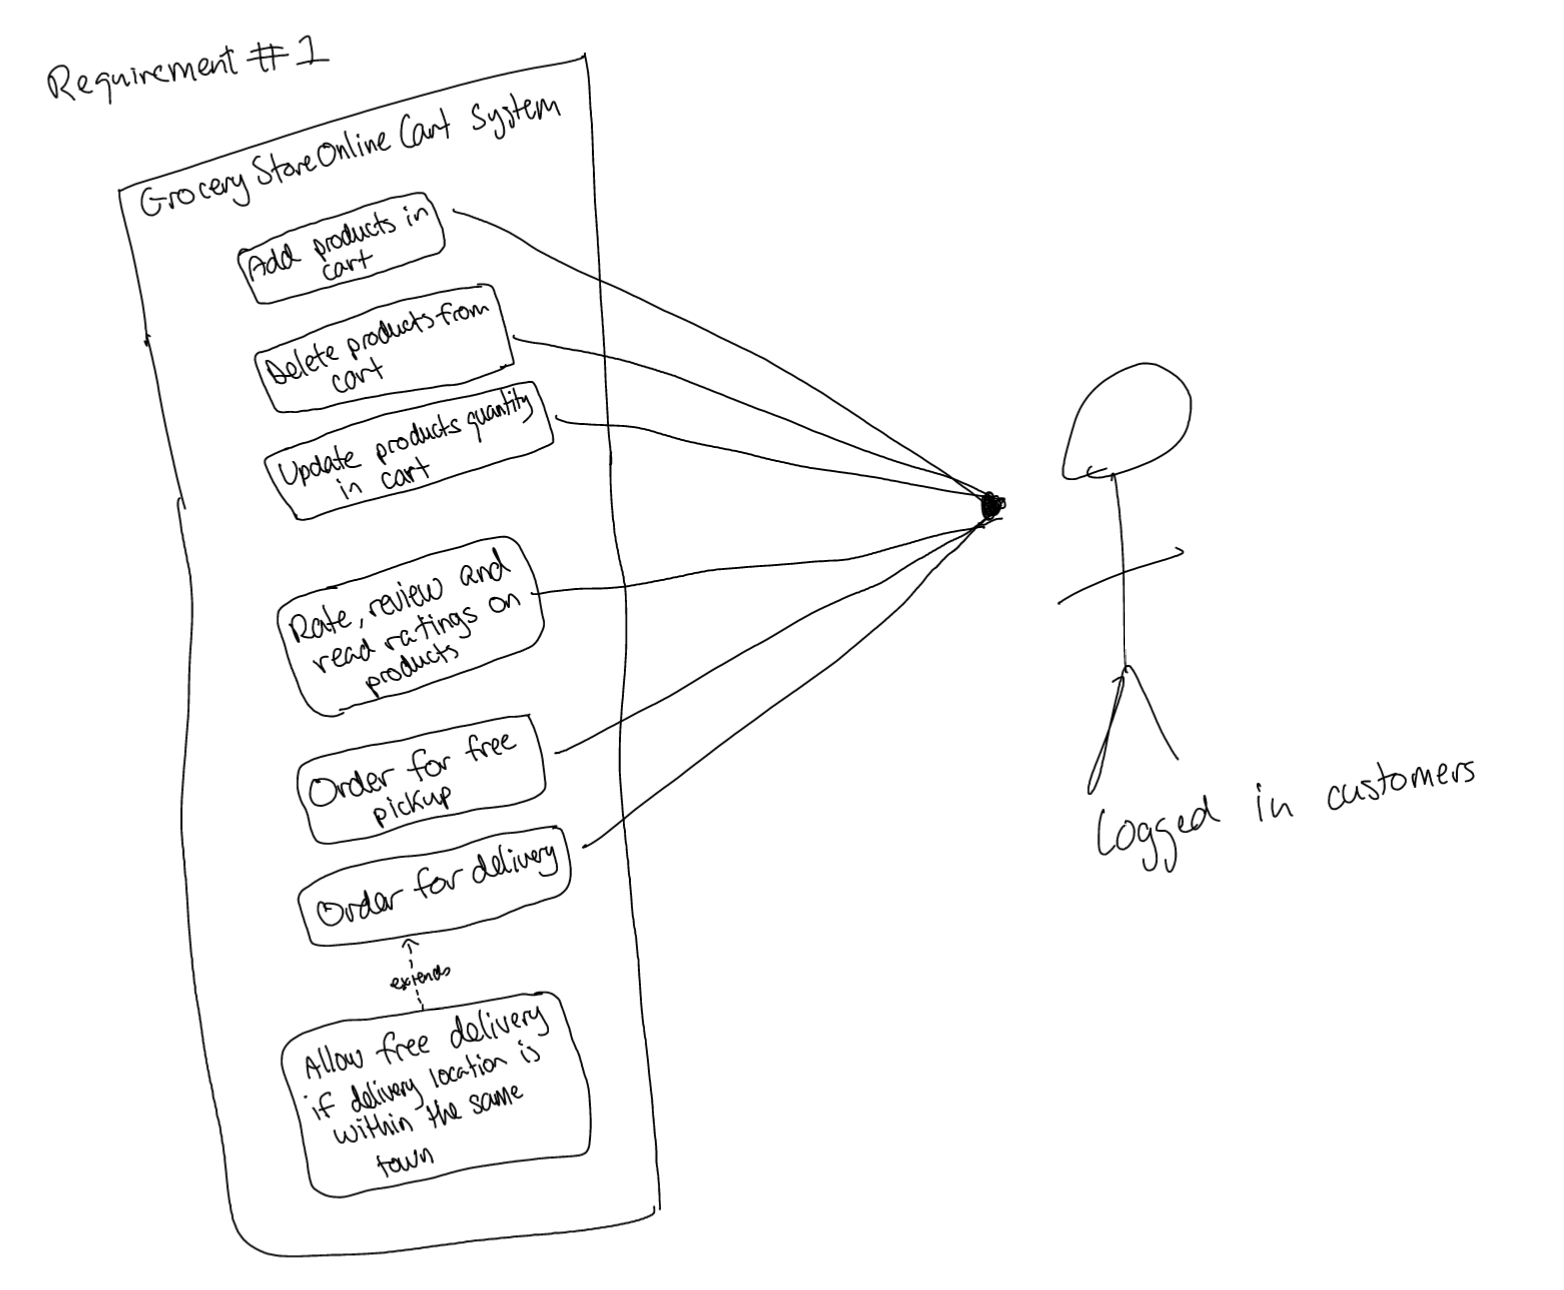 Requirement #1
Grocery Store Online Cart System
Add products in
cart
Delete products from
cart
Update products quantity
in cart
Rate, review and
read ratings on
products
Order for free
pickup
Order for delivery
extends
Allow free delivery
if delivery location is
within the same
town
Logged in customers